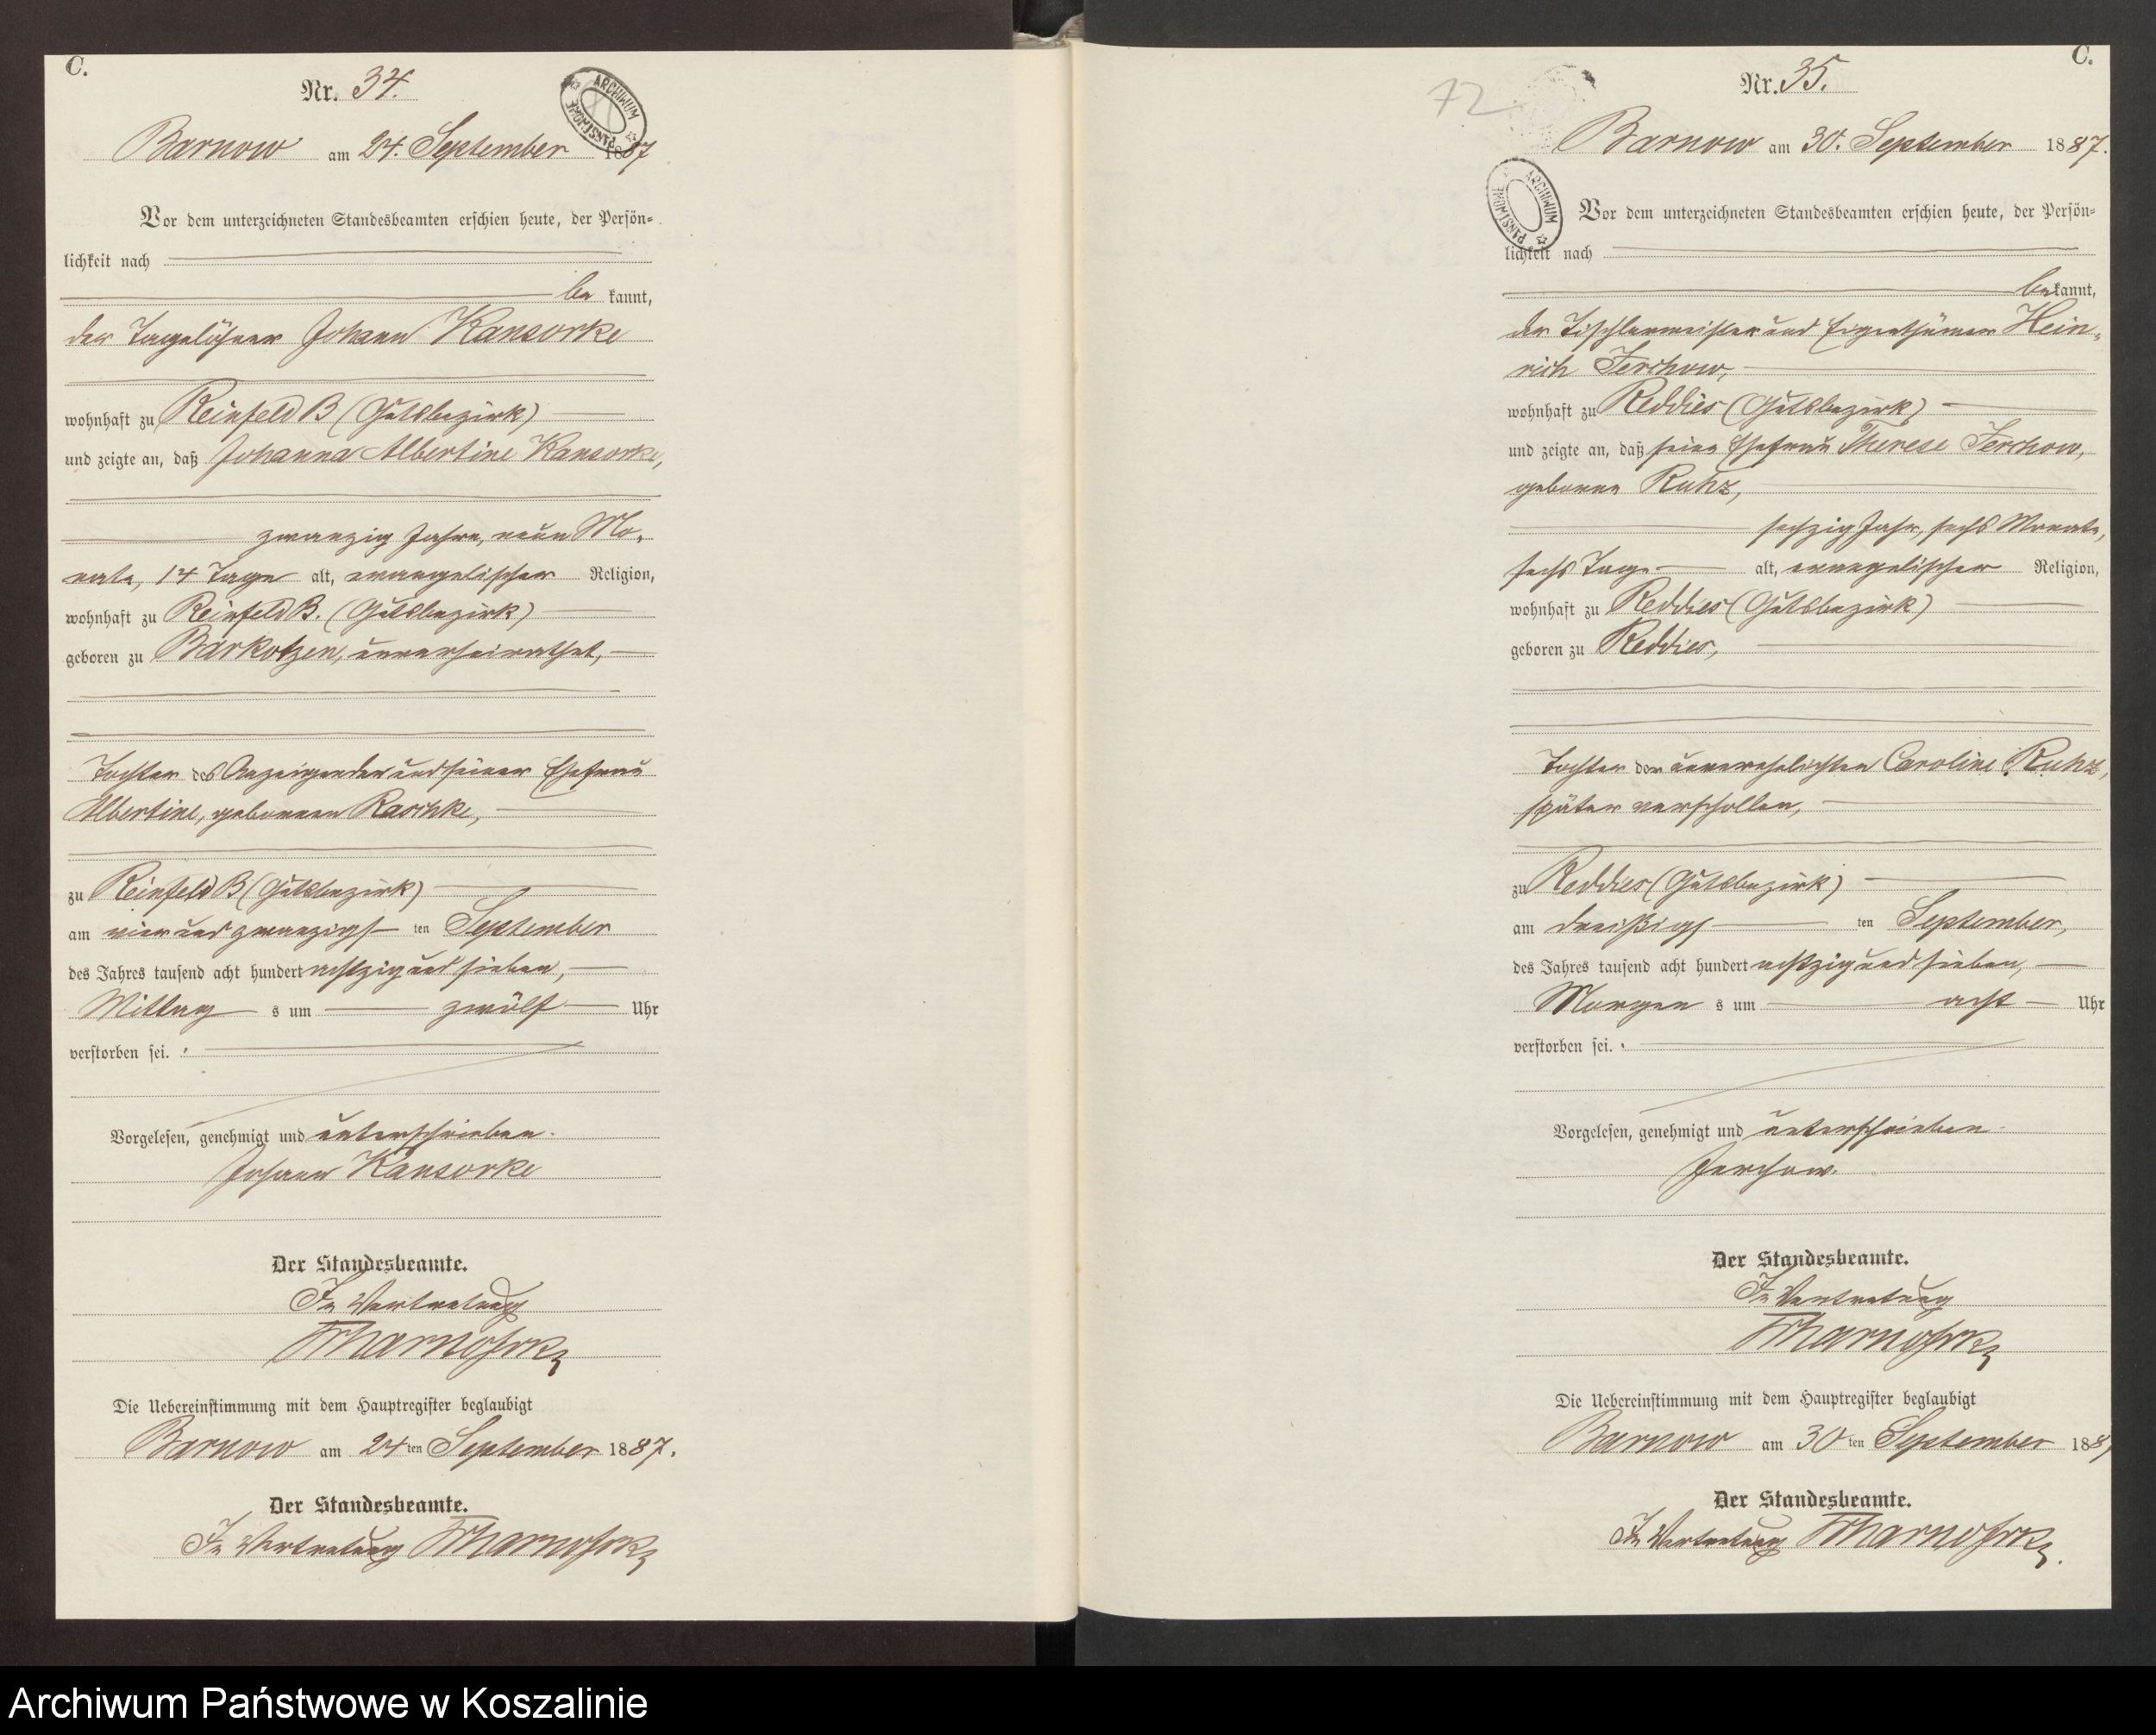 C.
Nr. 34.
ARCHIWUM PAŃSTWOWE
Barnow am 24. September 1887
Vor dem unterzeichneten Standesbeamten erschien heute, der Persön-
lichkeit nach
be kannt,
der Tagelöhner Johann Kansorke
wohnhaft zu Reinfeld B (Gutsbezirk)
und zeigte an, daß Johanna Albertine Kansorke,
zwanzig Jahre, neun Mo-
nate, 14 Tage alt, evangelischer Religion,
wohnhaft zu Reinfeld B. (Gutsbezirk)
geboren zu Barkotzen, unverheirathet,
Tochter des Anzeigenden und seiner Ehefrau
Albertine, geborenen Raschke,
zu Reinfeld B (Gutsbezirk)
am vier und zwanzigst ten September
des Jahres tausend acht hundert achtzig und sieben,
Mittag s um zwölf Uhr
verstorben sei.
Vorgelesen, genehmigt und unterschrieben.
Johann Kansorke
Der Standesbeamte.
In Vertretung
Die Uebereinstimmung mit dem Hauptregister beglaubigt
Barnow am 24 ten September 1887.
Der Standesbeamte.
In Vertretung
C.
72
Nr. 35.
Barnow am 30. September 1887.
ARCHIWUM PAŃSTWOWE
Vor dem unterzeichneten Standesbeamten erschien heute, der Persön-
lichkeit nach
be kannt,
der Tischlermeister und Eigenthümer Hein-
rich Jerchow,
wohnhaft zu Reddies (Gutsbezirk)
und zeigte an, daß seine Ehefrau Therese Jerchow,
geborene Ruhz,
sechzig Jahr, sechs Monate,
sechs Tage alt, evangelischer Religion,
wohnhaft zu Reddies (Gutsbezirk)
geboren zu Reddies,
Tochter der unverehelichten Caroline Ruhz,
später verschollen,
zu Reddies (Gutsbezirk)
am dreißigs ten September,
des Jahres tausend acht hundert achtzig und sieben,
Morgen s um acht Uhr
verstorben sei.
Vorgelesen, genehmigt und unterschrieben.
Jerchow.
Der Standesbeamte.
In Vertretung
Die Uebereinstimmung mit dem Hauptregister beglaubigt
Barnow am 30 ten September 188
Der Standesbeamte.
In Vertretung
Archiwum Państwowe w Koszalinie